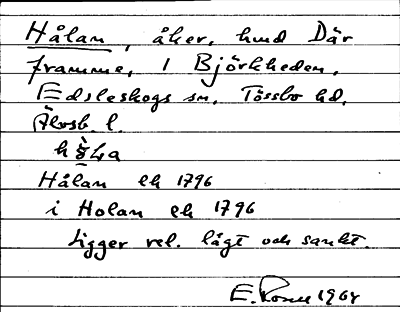 Hålan, åker, hmd Där
framme, 1 Björkheden,
Edsleskogs sn, Tössbo hd,
Älvsb. l.
Hålan lk 1796
i Holan lk 1796
Ligger rel. lågt och sankt.
E. 1964